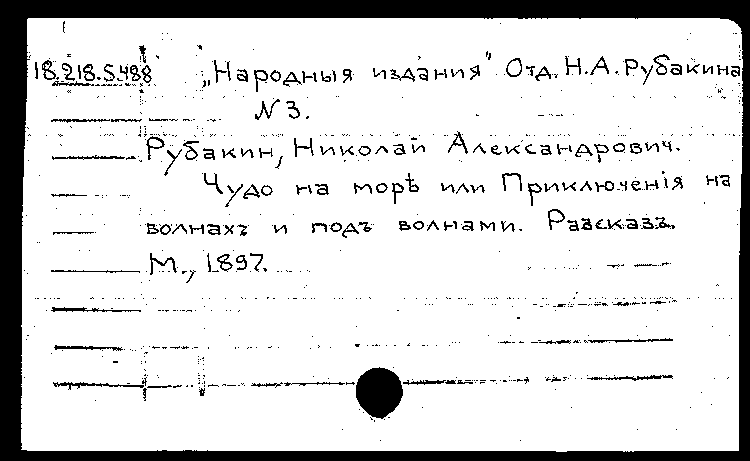 18.218.5.488 „Народныя издания" Отд. Н.А. Рубакина
N 3.
Рубакин, Николай Александрович.
Чудо на морѣ или Приключенія на
волнахъ и подъ волнами. Разсказъ.
М., 1897.